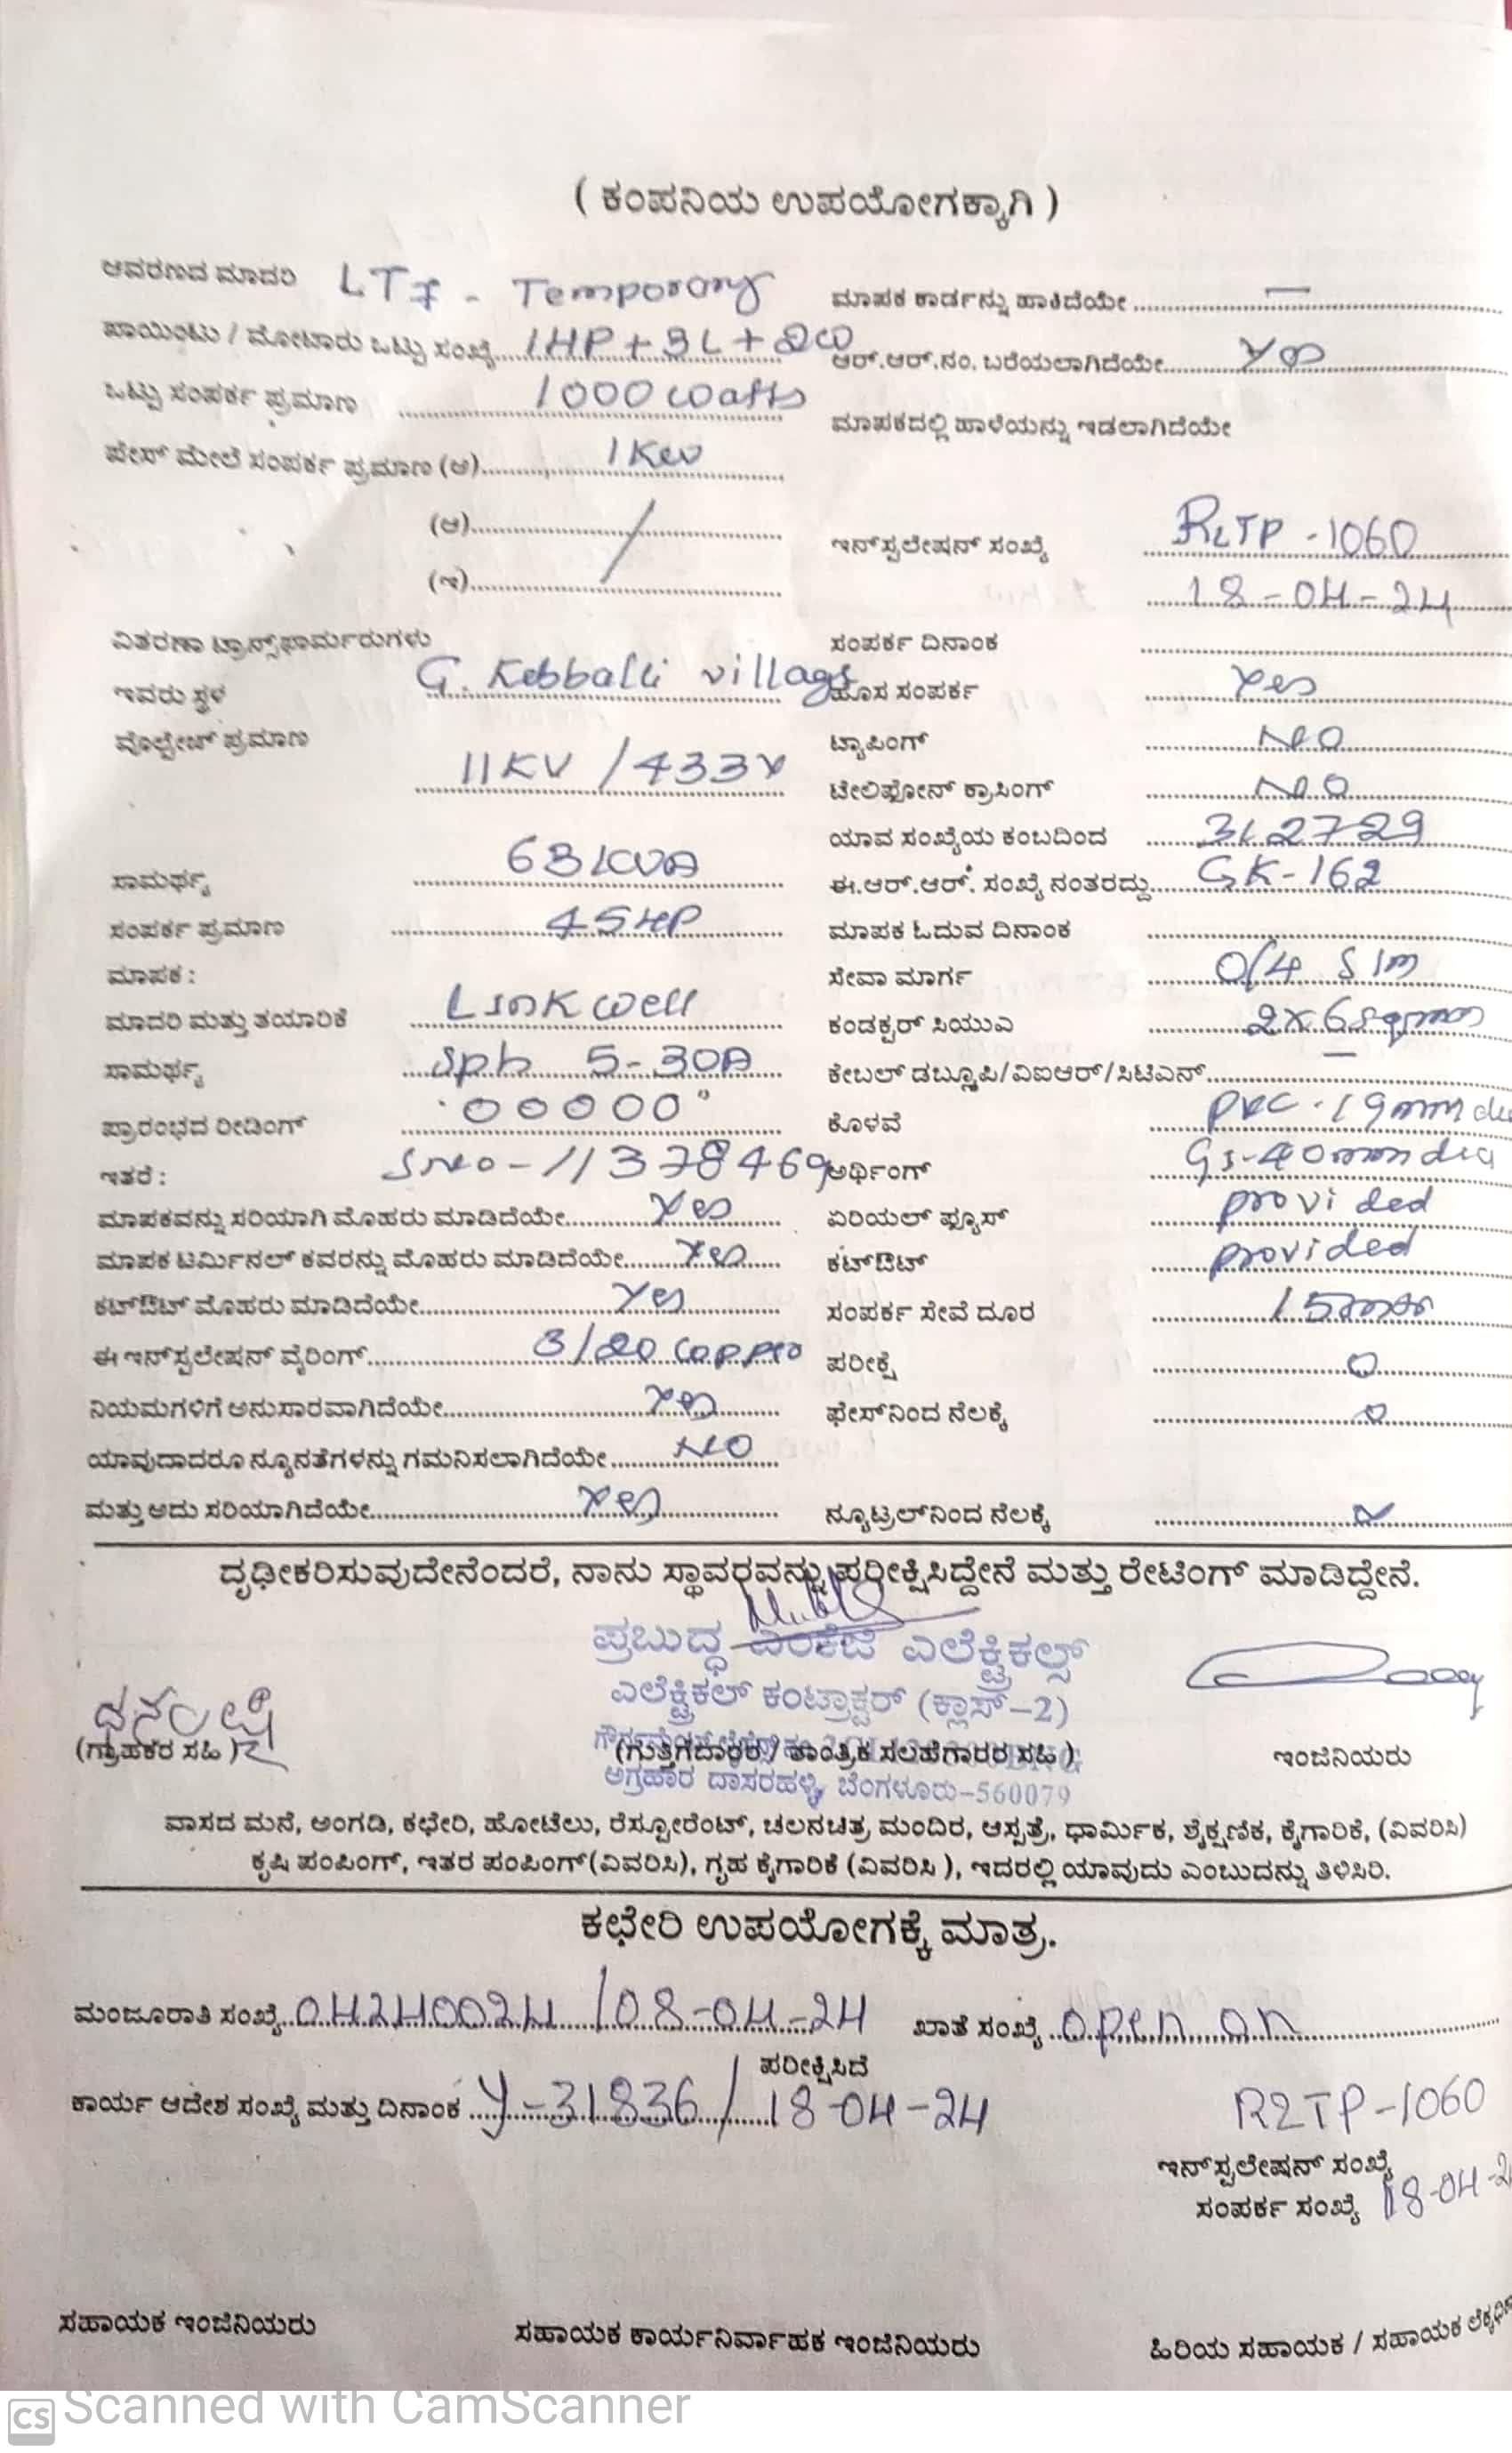 ( ಕಂಪನಿಯ ಉಪಯೋಗಕ್ಕಾಗಿ )
ಆವರಣದ ಮಾದರಿ LT7 - Temporary
ಮಾಪಕ ಕಾರ್ಡನ್ನು ಹಾಕಿದೆಯೇ .......... —
ಪಾಯಿಂಟು / ಮೋಟಾರು ಒಟ್ಟು ಸಂಖ್ಯೆ..... 1HP + 3L +
ಆರ್.ಆರ್.ನಂ. ಬರೆಯಲಾಗಿದೆಯೇ..... Yes
ಒಟ್ಟು ಸಂಪರ್ಕ ಪ್ರಮಾಣ ..... 1000 watts
ಮಾಪಕದಲ್ಲಿ ಹಾಳೆಯನ್ನು ಇಡಲಾಗಿದೆಯೇ
ಪೇಸ್ ಮೇಲೆ ಸಂಪರ್ಕ ಪ್ರಮಾಣ (ಅ)..... 1 Kw
(ಆ)..... /
ಇನ್‌ಸ್ಟಲೇಷನ್ ಸಂಖ್ಯೆ ..... R2TP - 1060
(ಇ).....
..... 18-04-24
ವಿತರಣಾ ಟ್ರಾನ್ಸ್‌ಫಾರ್ಮರುಗಳು
ಸಂಪರ್ಕ ದಿನಾಂಕ .....
ಇವರು ಸ್ಥಳ ..... G. Kebballi village
ಹೊಸ ಸಂಪರ್ಕ ..... Yes
ವೊಲ್ಟೇಜ್ ಪ್ರಮಾಣ ..... 11KV / 433V
ಟ್ಯಾಪಿಂಗ್ ..... No
ಟೇಲಿಫೋನ್ ಕ್ರಾಸಿಂಗ್ ..... No
ಯಾವ ಸಂಖ್ಯೆಯ ಕಂಬದಿಂದ .....
ಸಾಮರ್ಥ್ಯ ..... 63 KVA
ಈ.ಆರ್.ಆರ್. ಸಂಖ್ಯೆ ನಂತರದ್ದು..... GK-162
ಸಂಪರ್ಕ ಪ್ರಮಾಣ ..... 45HP
ಮಾಪಕ ಓದುವ ದಿನಾಂಕ .....
ಮಾಪಕ :
ಸೇವಾ ಮಾರ್ಗ .....
ಮಾದರಿ ಮತ್ತು ತಯಾರಿಕೆ ..... Linkwell
ಕಂಡಕ್ಟರ್ ಸಿಯುಎ ..... 2x6sqmm
ಸಾಮರ್ಥ್ಯ ..... Sph 5-30A
ಕೇಬಲ್ ಡಬ್ಲೂಪಿ/ವಿಐಆರ್/ಸಿಟಿಎನ್..... —
ಪ್ರಾರಂಭದ ರೀಡಿಂಗ್ ..... 00000
ಕೊಳವೆ ..... PVC - 19mm
ಇತರೆ : S no - 11378469
ಅರ್ಥಿಂಗ್ ..... GI-40mm dia
ಮಾಪಕವನ್ನು ಸರಿಯಾಗಿ ಮೊಹರು ಮಾಡಿದೆಯೇ..... Yes
ಏರಿಯಲ್ ಫ್ಯೂಸ್ ..... provided
ಮಾಪಕ ಟರ್ಮಿನಲ್ ಕವರನ್ನು ಮೊಹರು ಮಾಡಿದೆಯೇ..... Yes
ಕಟ್‌ಔಟ್ ..... provided
ಕಟ್‌ಔಟ್ ಮೊಹರು ಮಾಡಿದೆಯೇ..... Yes
ಸಂಪರ್ಕ ಸೇವೆ ದೂರ .....
ಈ ಇನ್‌ಸ್ಟಲೇಷನ್ ವೈರಿಂಗ್..... 3/20 copper
ಪರೀಕ್ಷೆ ..... 0
ನಿಯಮಗಳಿಗೆ ಅನುಸಾರವಾಗಿದೆಯೇ..... Yes
ಫೇಸ್‌ನಿಂದ ನೆಲಕ್ಕೆ ..... 0
ಯಾವುದಾದರೂ ನ್ಯೂನತೆಗಳನ್ನು ಗಮನಿಸಲಾಗಿದೆಯೇ..... NO
ಮತ್ತು ಅದು ಸರಿಯಾಗಿದೆಯೇ..... Yes
ನ್ಯೂಟ್ರಲ್‌ನಿಂದ ನೆಲಕ್ಕೆ .....
ದೃಢೀಕರಿಸುವುದೇನೆಂದರೆ, ನಾನು ಸ್ಥಾವರವನ್ನು ಪರೀಕ್ಷಿಸಿದ್ದೇನೆ ಮತ್ತು ರೇಟಿಂಗ್ ಮಾಡಿದ್ದೇನೆ.
ಪ್ರಬುದ್ಧ ಎಲೆಕ್ಟ್ರಿಕಲ್ಸ್
ಎಲೆಕ್ಟ್ರಿಕಲ್ ಕಂಟ್ರಾಕ್ಟರ್ (ಕ್ಲಾಸ್-2)
(ಗ್ರಾಹಕರ ಸಹಿ )
(ಗುತ್ತಿಗೆದಾರರ / ತಾಂತ್ರಿಕ ಸಲಹೆಗಾರರ ಸಹಿ )
ಇಂಜಿನಿಯರು
ಅಗ್ರಹಾರ ದಾಸರಹಳ್ಳಿ, ಬೆಂಗಳೂರು-560079
ವಾಸದ ಮನೆ, ಅಂಗಡಿ, ಕಛೇರಿ, ಹೋಟೆಲು, ರೆಸ್ಟೋರೆಂಟ್, ಚಲನಚಿತ್ರ ಮಂದಿರ, ಆಸ್ಪತ್ರೆ, ಧಾರ್ಮಿಕ, ಶೈಕ್ಷಣಿಕ, ಕೈಗಾರಿಕೆ, (ವಿವರಿಸಿ)
ಕೃಷಿ ಪಂಪಿಂಗ್, ಇತರ ಪಂಪಿಂಗ್(ವಿವರಿಸಿ), ಗೃಹ ಕೈಗಾರಿಕೆ (ವಿವರಿಸಿ ), ಇದರಲ್ಲಿ ಯಾವುದು ಎಂಬುದನ್ನು ತಿಳಿಸಿರಿ.
ಕಛೇರಿ ಉಪಯೋಗಕ್ಕೆ ಮಾತ್ರ.
ಮಂಜೂರಾತಿ ಸಂಖ್ಯೆ..04240024 / 08-04-24 ಖಾತೆ ಸಂಖ್ಯೆ ..open on
ಪರೀಕ್ಷಿಸಿದೆ
ಕಾರ್ಯ ಆದೇಶ ಸಂಖ್ಯೆ ಮತ್ತು ದಿನಾಂಕ .... y-31836 / 18-04-24
R2TP-1060
ಇನ್‌ಸ್ಟಲೇಷನ್ ಸಂಖ್ಯೆ
ಸಂಪರ್ಕ ಸಂಖ್ಯೆ 18-04-2
ಸಹಾಯಕ ಇಂಜಿನಿಯರು
ಸಹಾಯಕ ಕಾರ್ಯನಿರ್ವಾಹಕ ಇಂಜಿನಿಯರು
ಹಿರಿಯ ಸಹಾಯಕ / ಸಹಾಯಕ
CS Scanned with CamScanner